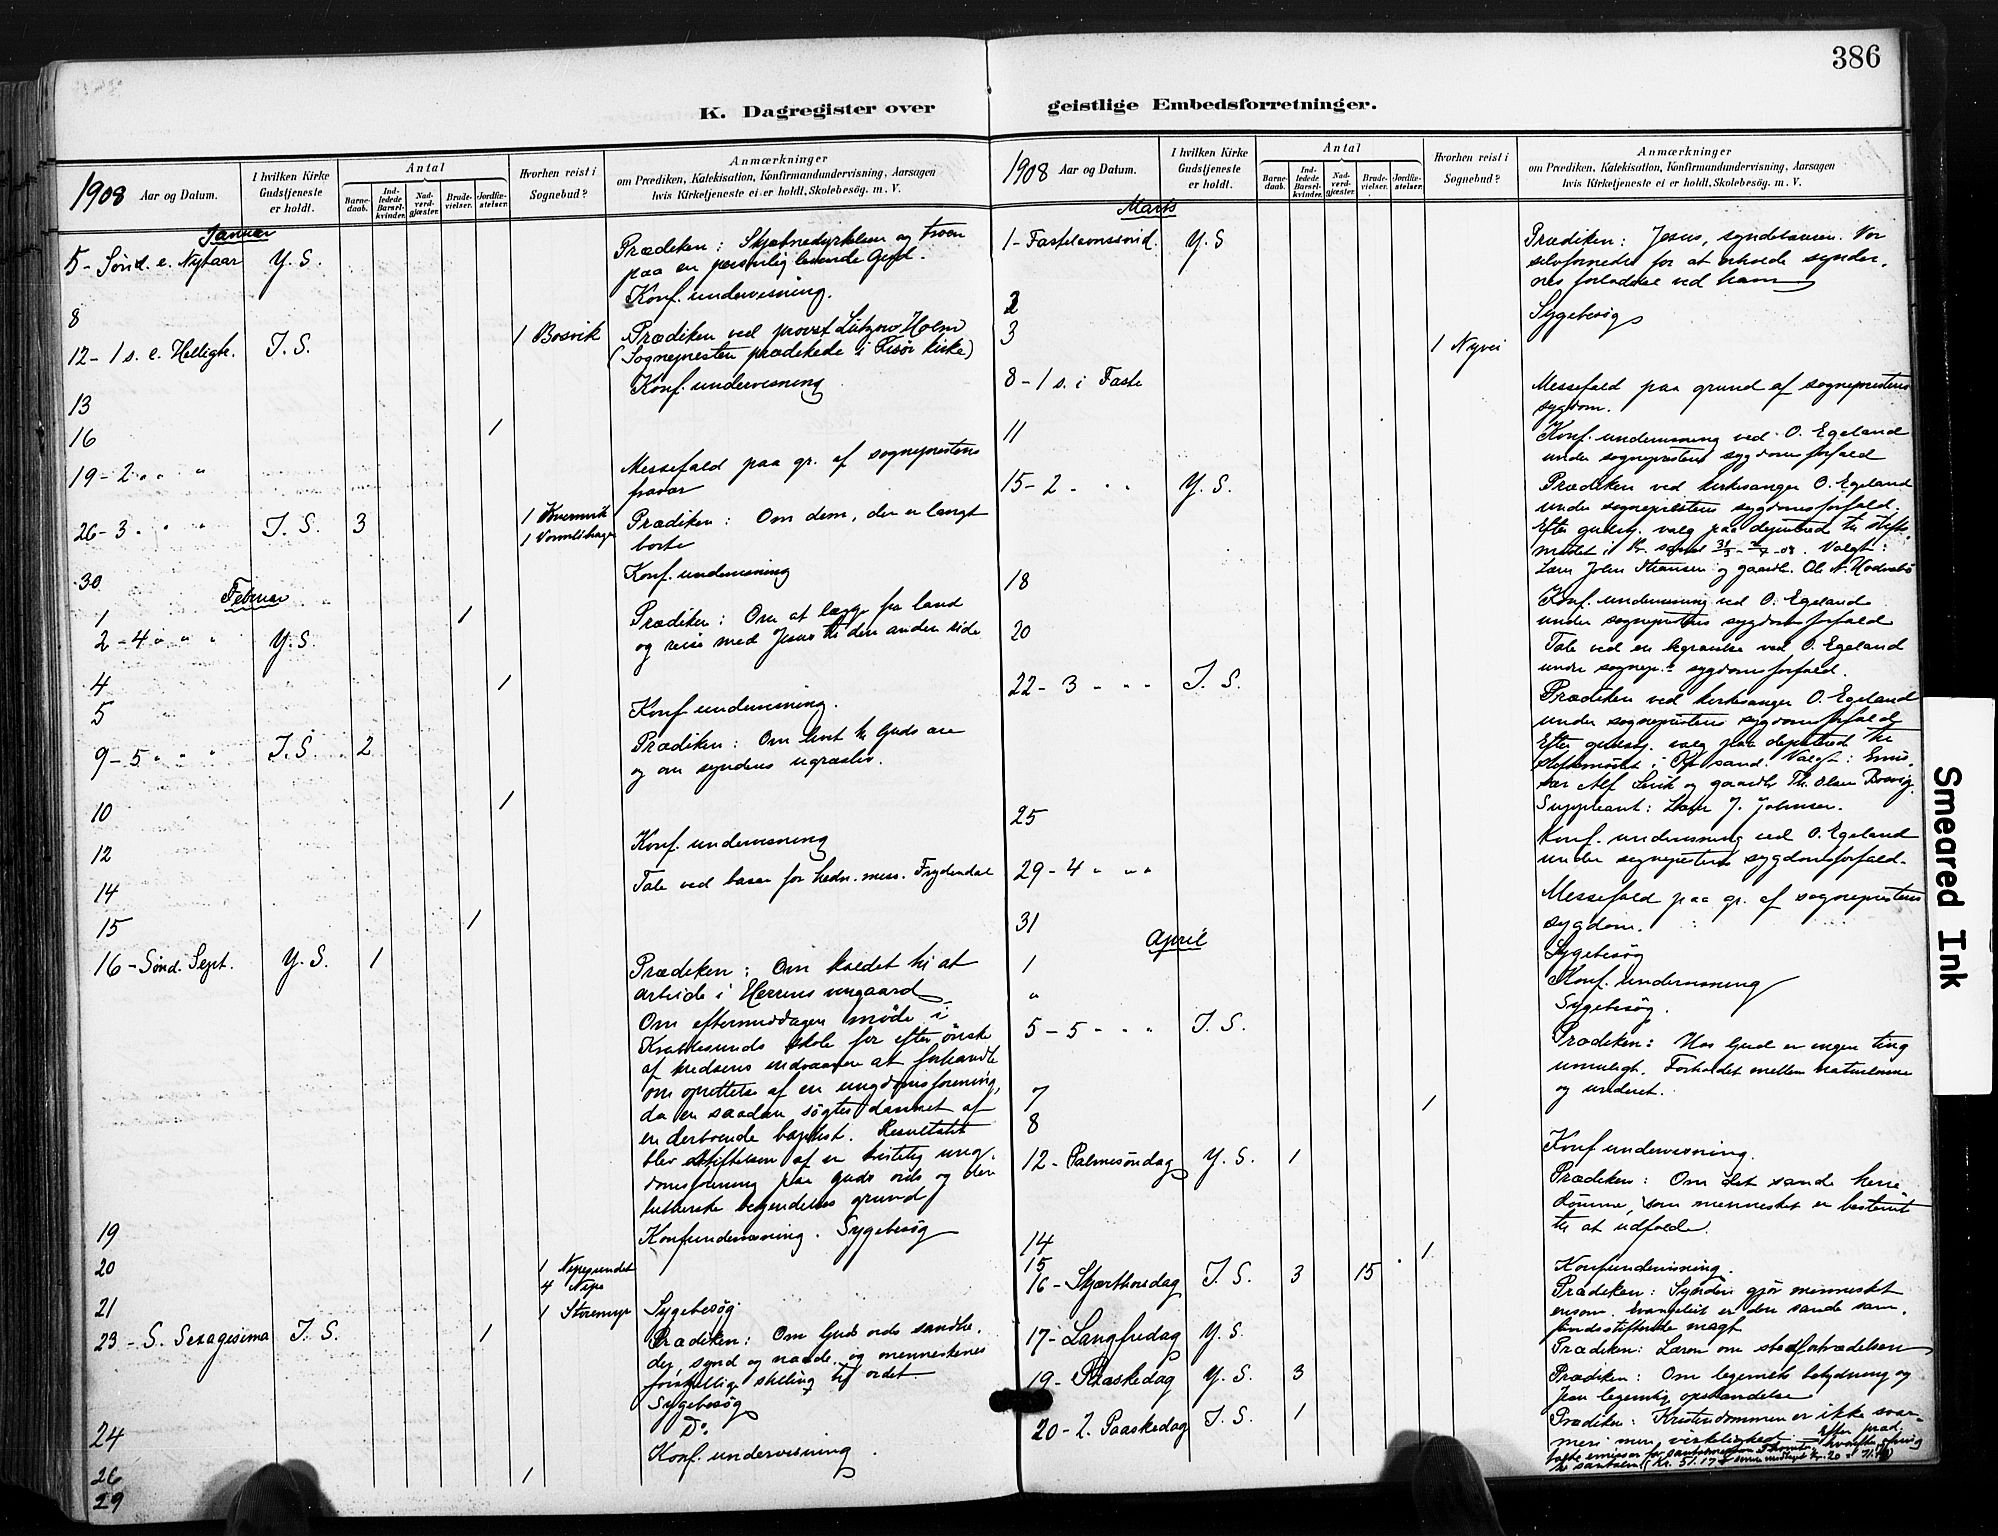 386
K. Dagregister over geistlige Embedsforretninger.
1908 Aar og Datum.
I hvilken Kirke Gudstjeneste er holdt.
Antal
Barnedaab.
Indledede Barselkvinder.
Nadverdgjæster.
Brudevielser.
Jordfæstelser.
Hvorhen reist i Sognebud?
Anmærkninger
om Prædiken, Katekisation, Konfirmandundervisning, Aarsagen
hvis Kirketjeneste ei er holdt, Skolebesøg. m. V.
Januar
5 - Sønd. e. Nytaar Y. S. Prædiken: Skjæbnedyrkelsen og troen
paa en personlig levende Gud.
8 Konf. undervisning.
12 - 1 s. e. Helligtr. I. S. 1 Bosvik Prædiken ved provst Lützow Holm
(Sognepresten prædikede i Risør kirke)
13 Konf. undervisning
16 1
19 - 2 " " " Messefald paa gr. af sogneprestens
fravær
26 - 3 " " " I. S. 3 1 1 Prædiken: Om dem, der er langt
borte
30 Konf. undervisning
Februar
1 1
2 - 4 " " " Y. S. Prædiken: Om at lægge fra land
og reise med Jesus til den anden side
4 1
5 Konf. undervisning.
9 - 5 " " " I. S. 2 Prædiken: Om livet til Guds ære
og om syndens ugræs
10 1
12 Konf. undervisning
14 Tale ved basar for hedn. miss. Frydendal
15 1
16 - Sønd. Sept. Y. S. 1 Prædiken: Om kaldet til at
arbeide i Herrens vingaard.
Om eftermiddagen møde i
Krabbesunds skole for efter ønske
af kredsens indvaanere at forhandle
om oprettelse af en ungdomsforening,
da en saadan søgtes dannet af
en derboende baptist. Resultatet
blev stiftelsen af en kristelig ung-
domsforening paa Guds ords og den
lutherske bekjendelses grund
19 Konfundervisning. Sygebesøg
20 1
4
21 1 Storemyr Sygebesøg.
23 - S. Sexagesima I. S. 1 Prædiken: Om Guds ords sandhe-
der, synd og naade, og menneskenes
forskjellige stilling til ordet
Sygebesøg
24 Do
26 Konf. undervisning.
29 1
1908 Aar og Datum.
I hvilken Kirke Gudstjeneste er holdt.
Antal
Barnedaab.
Indledede Barselkvinder.
Nadverdgjæster.
Brudevielser.
Jordfæstelser.
Hvorhen reist i Sognebud?
Anmærkninger
om Prædiken, Katekisation, Konfirmandundervisning, Aarsagen
hvis Kirketjeneste ei er holdt, Skolebesøg. m. V.
Marts
1 - Fastelavnssønd. Y. S Prædiken: Jesus, syndebæreren. Vor
selvfornedr. for at erholde synder-
nes forladelse ved ham
2 Sygebesøg
3 1 Nyvei
8 - 1 s. i Faste Messefald paa grund af sogneprestens
sygdom.
11 Konf. undervisning ved O. Egeland
under sogneprestens sygdomsforfald
15 - 2 " " Y. S. Prædiken ved kirkesanger O. Egeland
under sogneprestens sygdomsforfald.
Efter gudstj. valg paa deputered til stifts-
mødet i Kr. sand Valgt:
Lærer John og gaardb. Ole N.
18 Konf. undervisning ved O. Egeland
under sogneprestens sygdomsforfald
20 Tale ved en begravelse ved O. Egeland
under sognep.s sygdomsforfald.
22 - 3 " " " I. S. Prædiken ved kirkesanger O. Egeland
under sogneprestens sygdomsforfald
Efter gudstj. valg paa deputered til
Stiftsmødet i Valgt:
Alf og gaardb. Th. Olsen Bosvig.
Suppleant: Lærer J. Johnsen.
25 Konf. undervisning ved O. Egeland
under sogneprestens sygdomsforfald.
29 - 4 " " " Messefald paa gr. af sogneprestens
sygdom.
31 Sygebesøg
April
1 Konf. undervisning
" Sygebesøg.
5 - 5 " " " I. S. Prædiken: Hos Gud er ingen ting
umuligt. Forholdet mellem naturlovene
og underet.
7 1
8 Konf undervisning.
12 - Palmesøndag Y. S. 1 Prædiken: Om det sande herre
dømme, som mennesket er bestemt
til at udfolde.
14 1
15 Konfundervisning.
16 - Skjærthorsdag I. S. 3 15 Prædiken: Synden gjør mennesket
ensom. Evangeliet er den sande sam-
fundsstiftende magt
17 - Langfredag Y. S. Prædiken: Læren om stedfortrædelsen
19 - Paaskedag Y. S. 3 Prædiken: Om legemets betydning og
Jesu legemlig opstandelse
20 - 2. Paaskedag I. S. 1 Prædiken: Kristendommen er ikke svær-
meri men virkelighed. Efter præd.
Smeared Ink